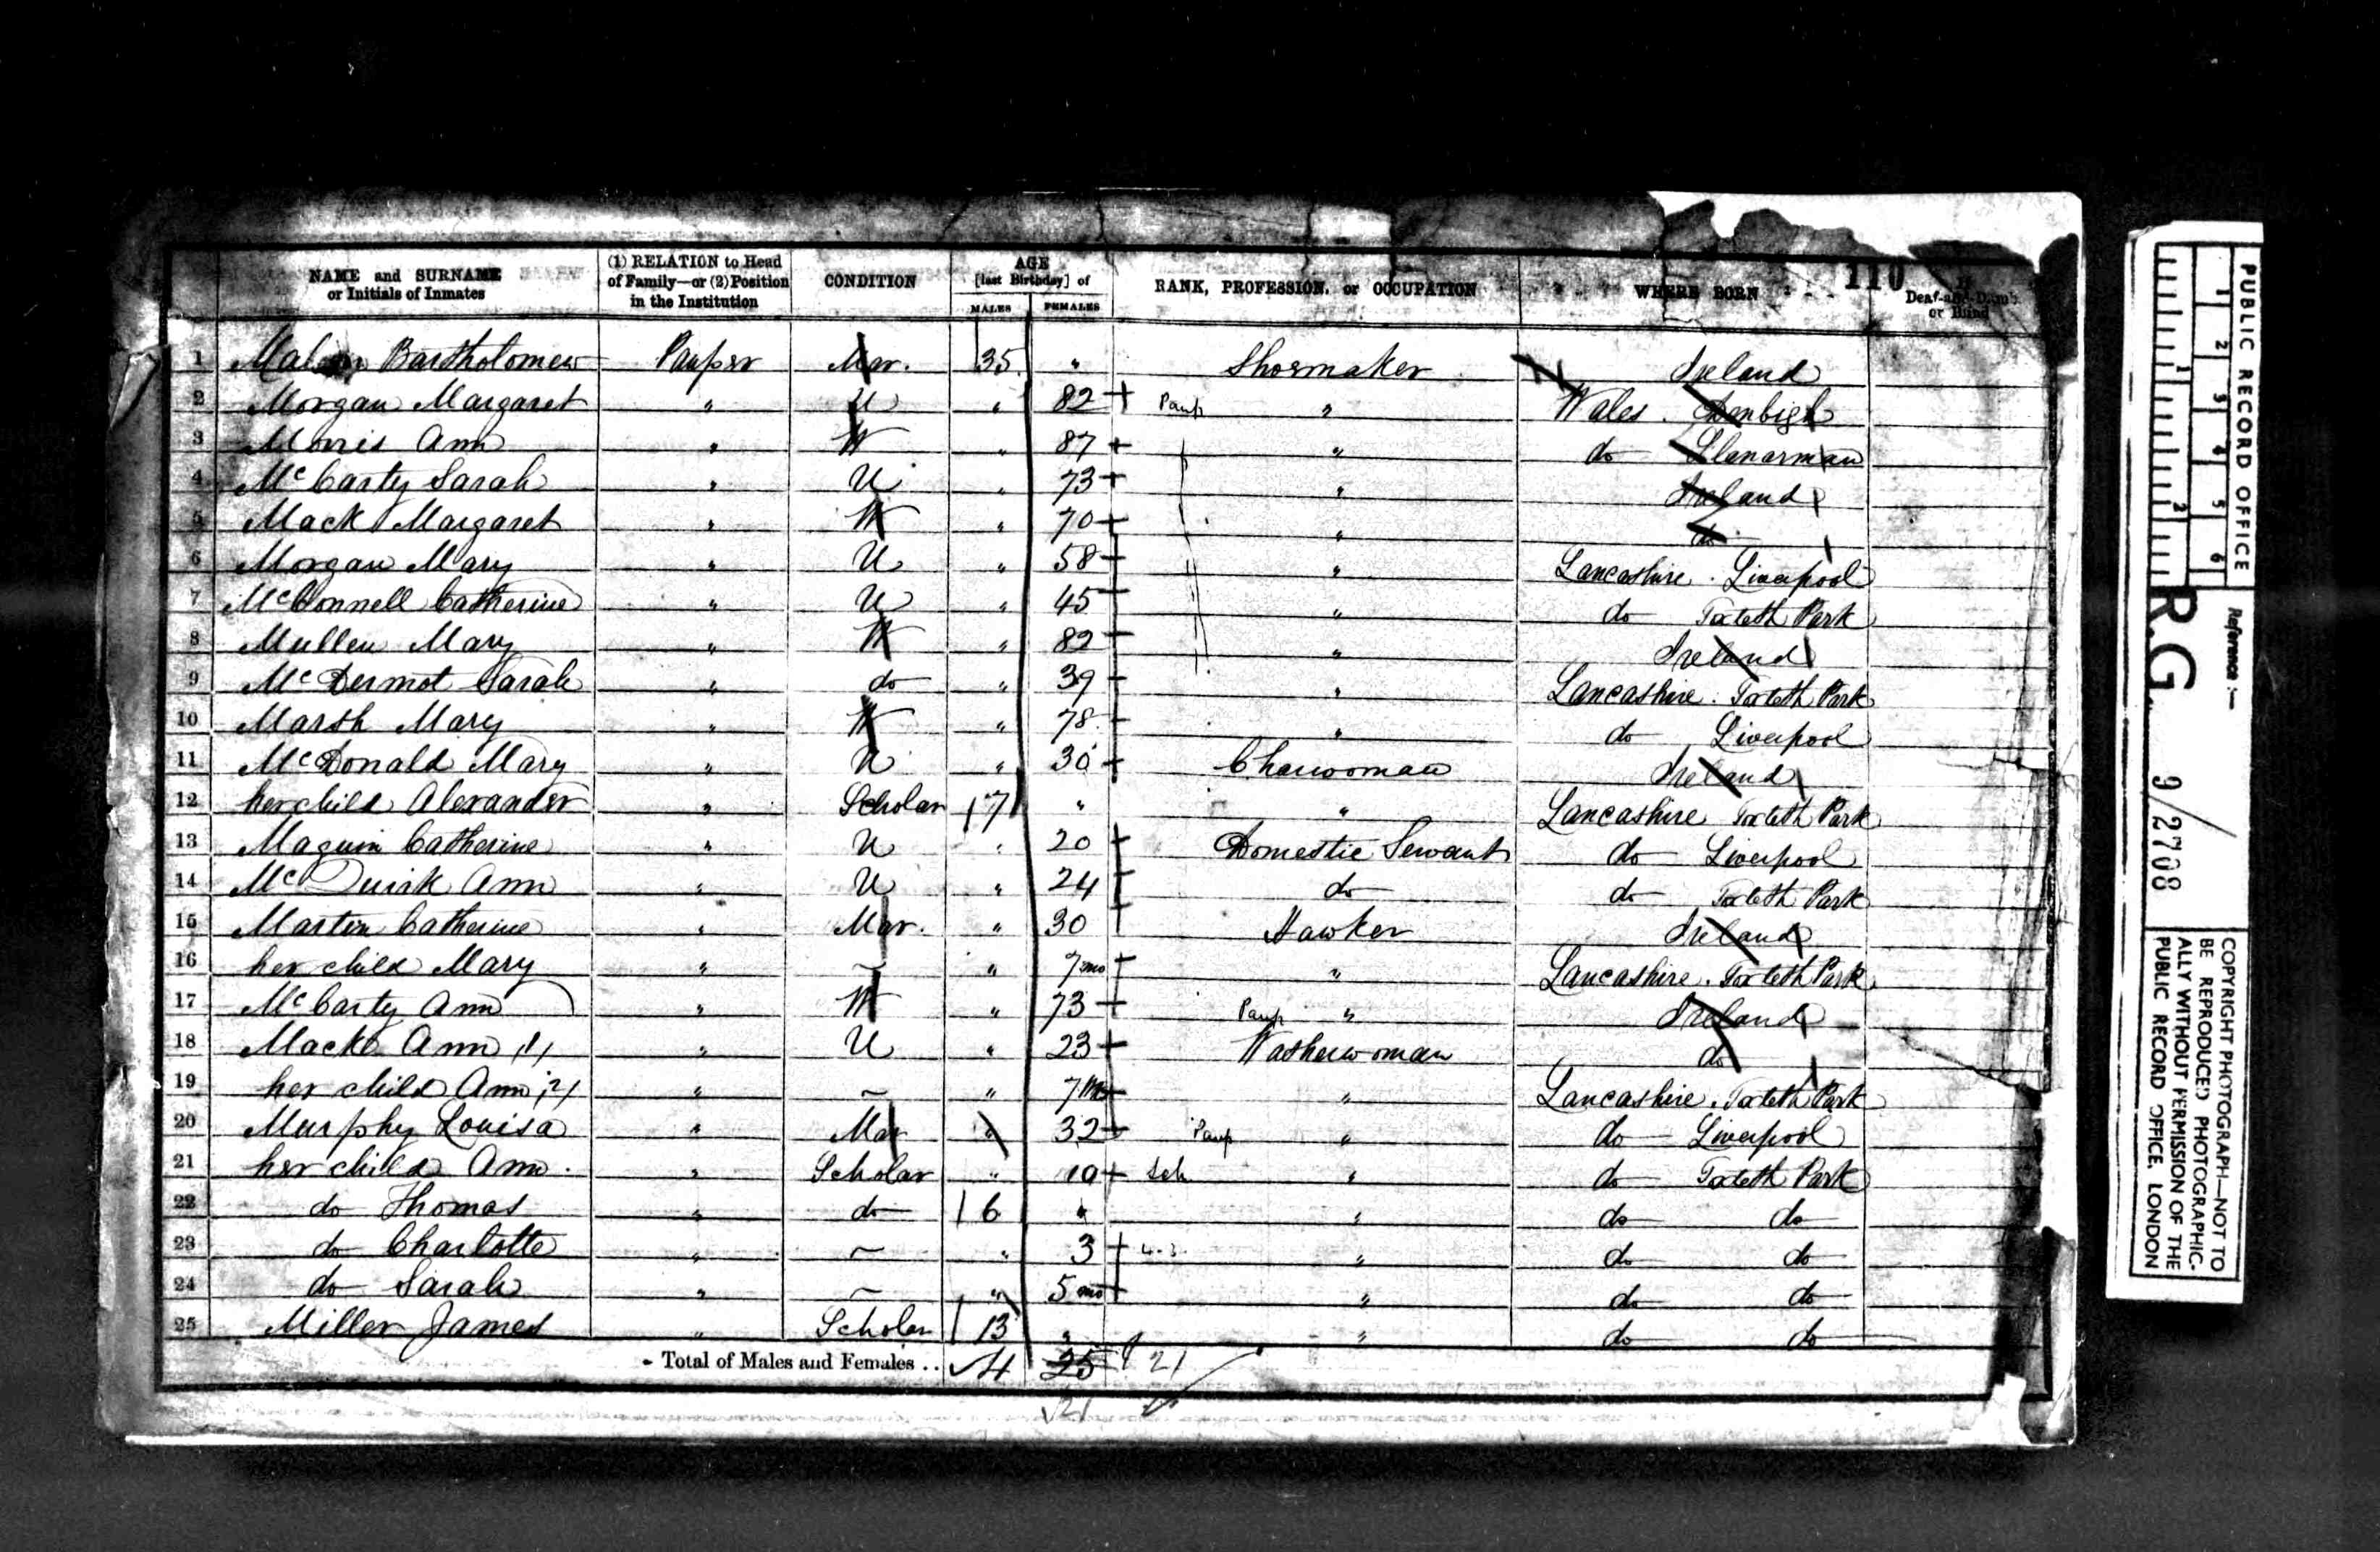 110
NAME and SURNAME or Initials of Inmates
(1) RELATION to Head of Family—or (2) Position in the Institution
CONDITION
AGE [last Birthday] of
MALES FEMALES
RANK, PROFESSION, or OCCUPATION
WHERE BORN
Deaf-and-Dumb or Blind
1 Bartholomew Pauper Mar. 35 " Shoemaker Ireland
2 Morgan Margaret " U " 82 Paup " Wales. Denbigh
3 Morris Ann " W " 87 " do Llanarman
4 McCarty Sarah " U " 73 " Ireland
5 Mack Margaret " W " 70 " do
6 Morgan Mary " U " 58 " Lancashire. Liverpool
7 McConnell Catherine " U " 45 " do Toxteth Park
8 Mullen Mary " W " 82 " Ireland
9 McDermot Sarah " do " 39 " Lancashire. Toxteth Park
10 Marsh Mary " W " 78 " do Liverpool
11 McDonald Mary " U " 30 Charwoman Ireland
12 her child Alexander " Scholar 7 " " Lancashire Toxteth Park
13 Maguin Catherine " U " 20 Domestic Servant do Liverpool
14 McQuirk Ann " U " 24 do do Toxteth Park
15 Martin Catherine " Mar. " 30 Hawker Ireland
16 her child Mary " ~ " 7 mo " Lancashire. Toxteth Park
17 McCarty Ann " W " 73 Paup " Ireland
18 Macke Ann (1) " U " 23 Washerwoman do
19 her child Ann (2) " ~ " 7 mo " Lancashire. Toxteth Park
20 Murphy Louisa " Mar " 32 Paup " do Liverpool
21 her child Ann. " Scholar " 10 Sch " do Toxteth Park
22 do Thomas " do 6 " " do do
23 do Charlotte " ~ " 3 " do do
24 do Sarah " ~ " 5 mo " do do
25 Miller James " Scholar 13 " " do do
Total of Males and Females .. 4 25 21
21
PUBLIC RECORD OFFICE
1 2 3 4 5 6
1 2
Reference :—
R.G. 9/2708
COPYRIGHT PHOTOGRAPH—NOT TO
BE REPRODUCED PHOTOGRAPHIC-
ALLY WITHOUT PERMISSION OF THE
PUBLIC RECORD OFFICE, LONDON